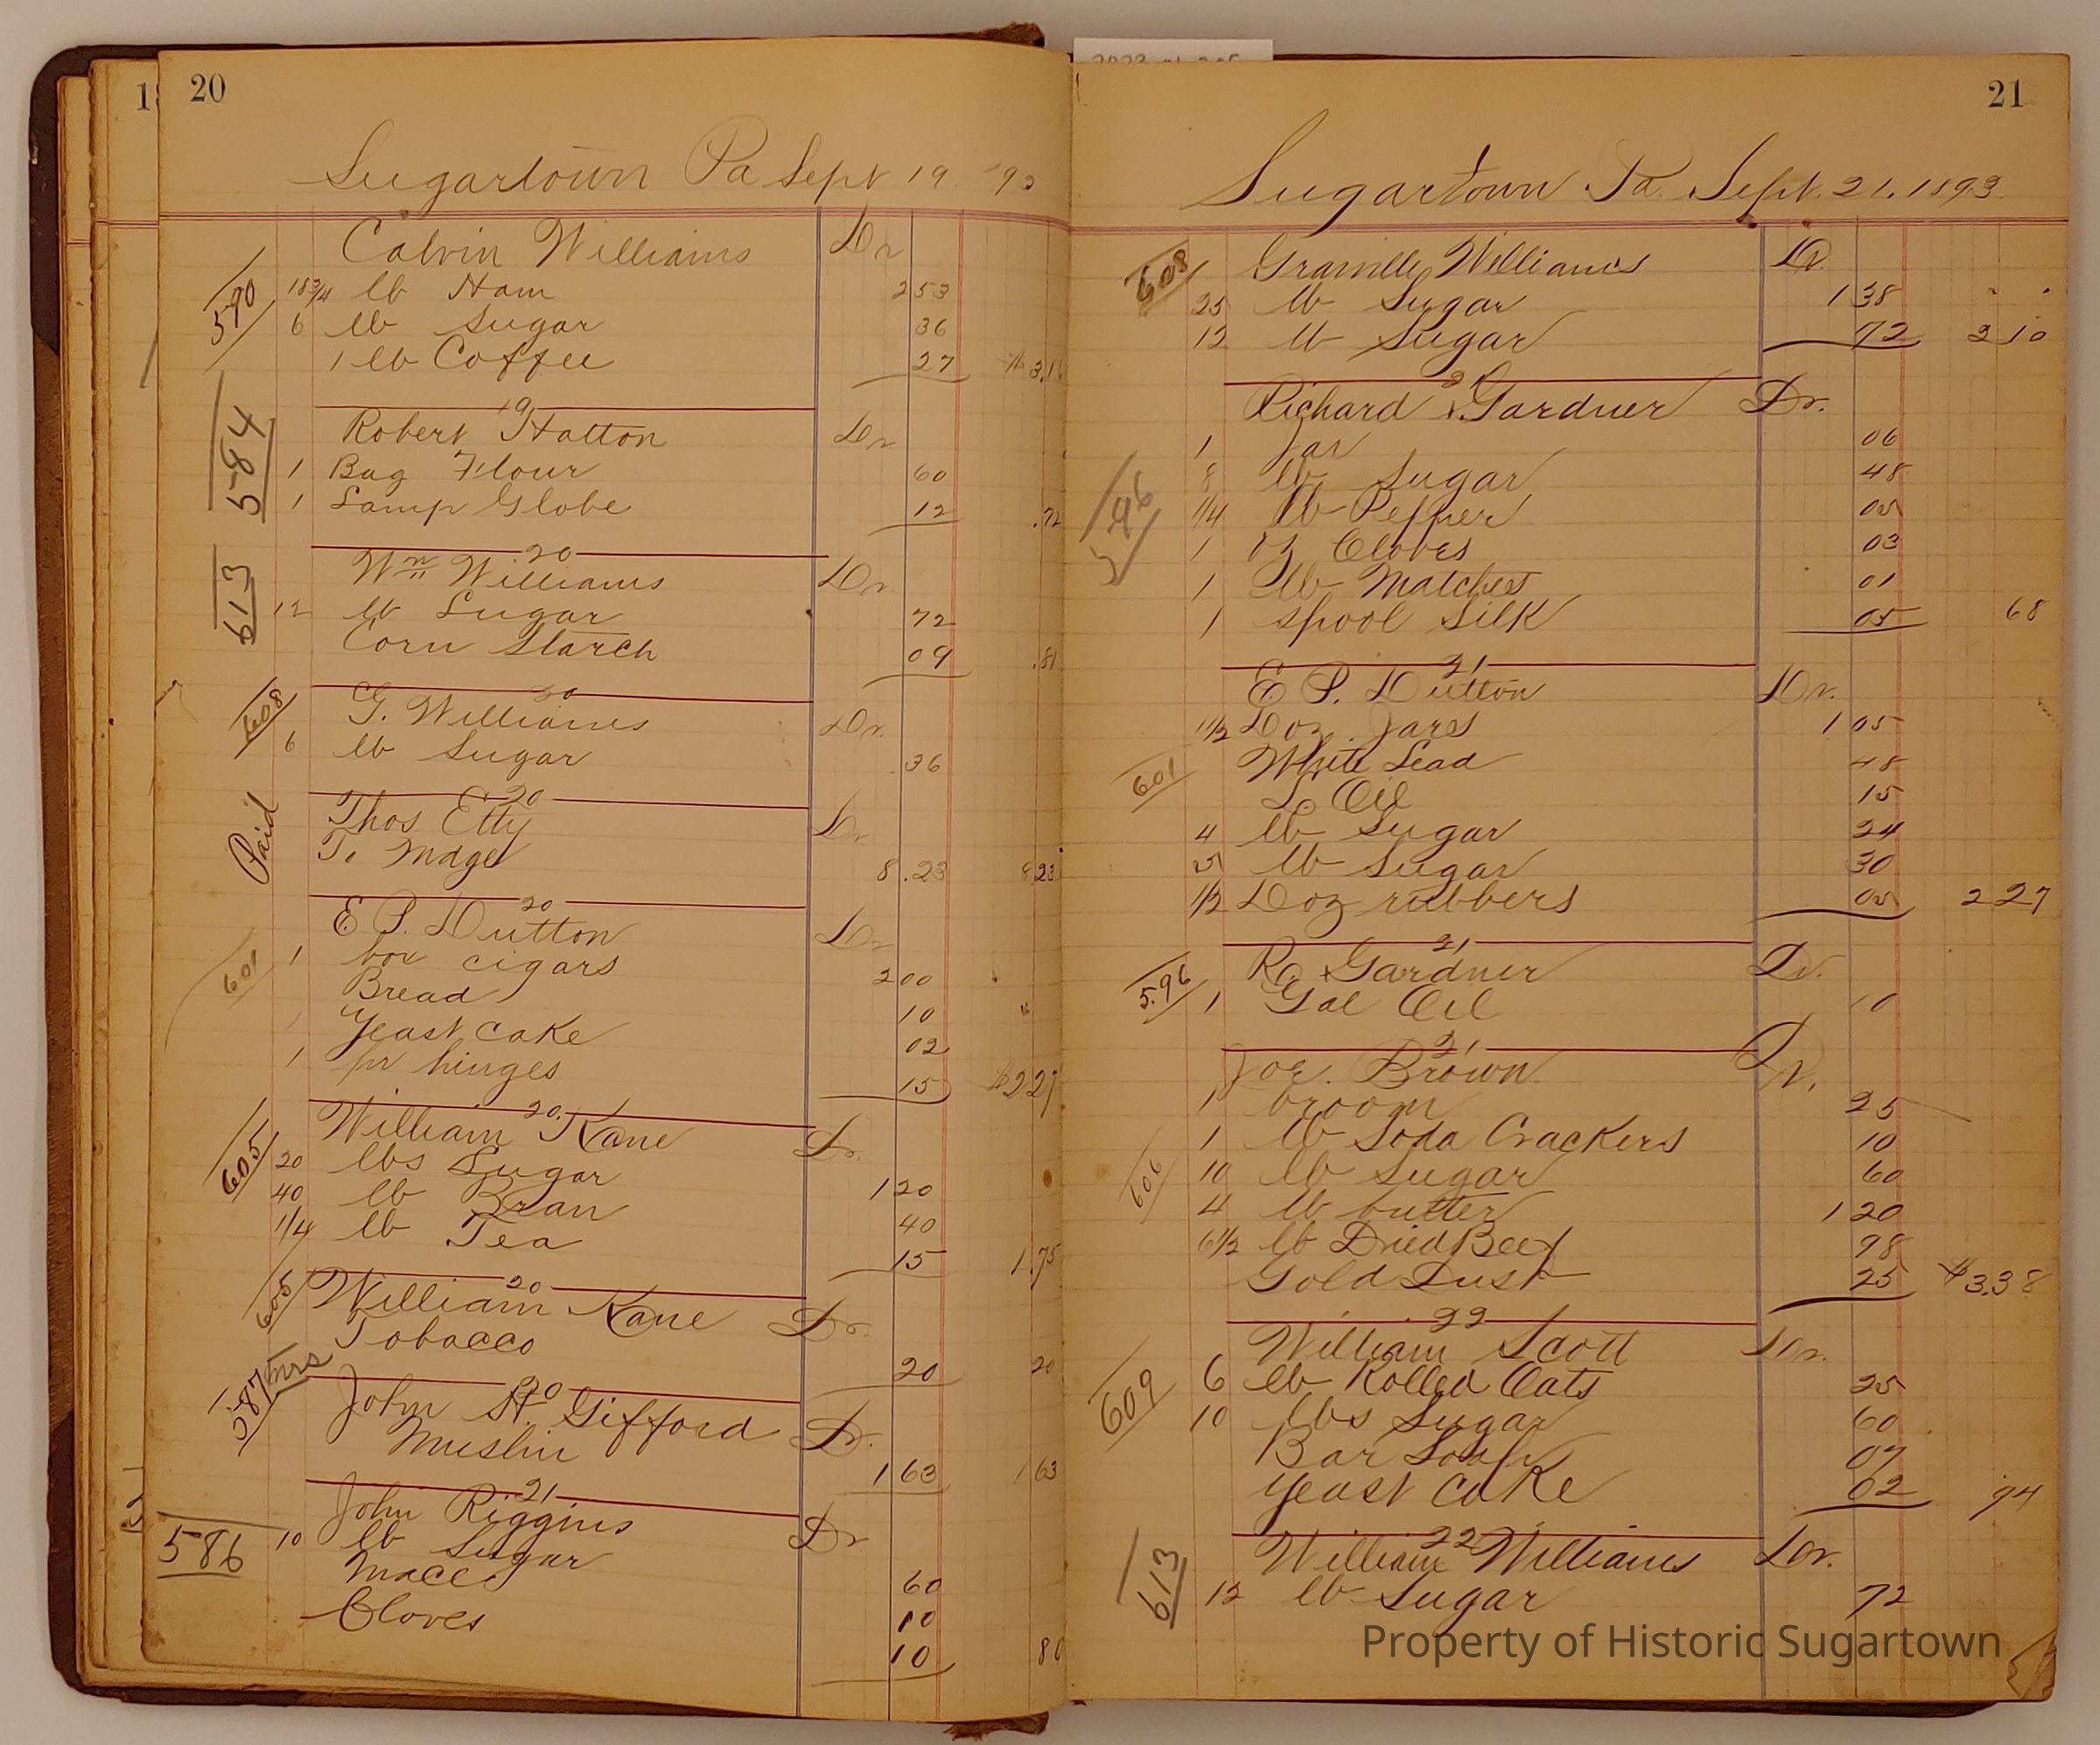 20
Sugartown Pa Sept 19 - 93
Calvin Williams Dr
590
18 3/4 lb Ham 2 53
6 lb Sugar 36
1 lb Coffee 27 $3.16
19
584
Robert Hatton Dr
1 Bag Flour 60
1 Lamp Globe 12 .72
20
613
Wm Williams Dr
12 lb Sugar 72
Corn Starch 09 .81
20
608
G. Williams Dr.
6 lb Sugar 36
20
Paid
Thos Etty Dr
To Mdge 8.23 8.23
20
601
E. P. Dutton Dr
1 box cigars 2 00
Bread 10
1 Yeast Cake 02
1 pr hinges 15 $2 27
20.
605
William Kane Dr.
20 lbs Sugar 1 20
40 lb Bran 40
1/4 lb Tea 15 1.75
20
605
William Kane Dr.
Tobacco 20 20
20
587 mrs
John St. Gifford Dr.
Muslin 1 63 1 63
21
586
John Riggins Dr
10 lb Sugar 60
Mace 10
Cloves 10 80
21
Sugartown Pa. Sept. 21. 1893
608
Granville Williams Dr.
25 lb Sugar 1 38
12 lb Sugar 72 2 10
21
596
Richard Gardner Dr.
1 Jar 06
8 lb Sugar 48
1/4 lb Pepper 05
1 oz Cloves 03
1 lb Matches 01
1 spool Silk 05 68
21
601
E P. Dutton Dr.
1 1/2 Doz. Jars 1 05
White Lead 48
L. Oil 15
4 lb Sugar 24
5 lb Sugar 30
1/2 Doz rubbers 05 2 27
21
596
R. Gardner Dr.
1 Gal Oil 10
21
606
Joe. Brown Dr.
1 broom 25
1 lb Soda Crackers 10
10 lb Sugar 60
4 lb butter 1 20
6 1/2 lb Dried Beef 98
Gold Dust 25 $3.38
22
609
William Scott Dr.
6 lb Rolled Oats 25
10 lbs Sugar 60
Bar Soap 07
Yeast Cake 02 94
22
613
William Williams Dr.
12 lb Sugar 72
Property of Historic Sugartown